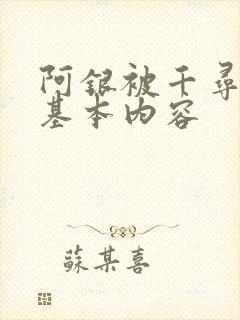 阿银被千寻
基本内容
蘇某喜